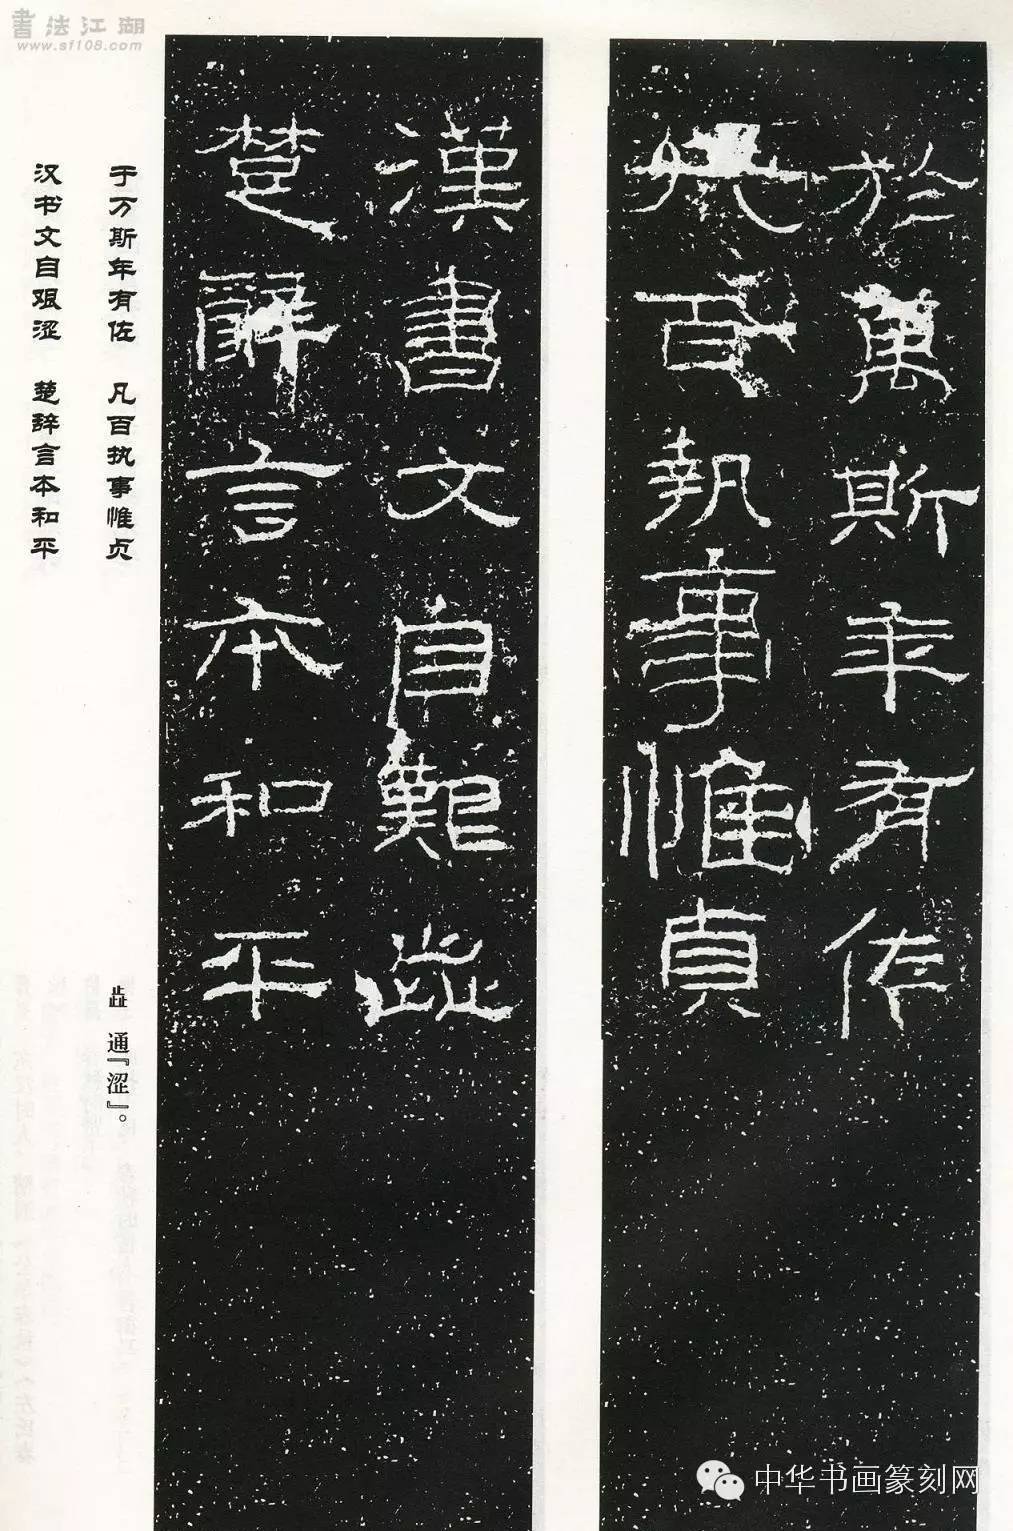 書法江湖
www.sf108.com
於萬斯年有佐
凡百執事惟貞
漢書文自艱歮
楚辭言本和平
于万斯年有佐　凡百执事惟贞
汉书文自艰涩　楚辞言本和平
歮　通『涩』。
中华书画篆刻网